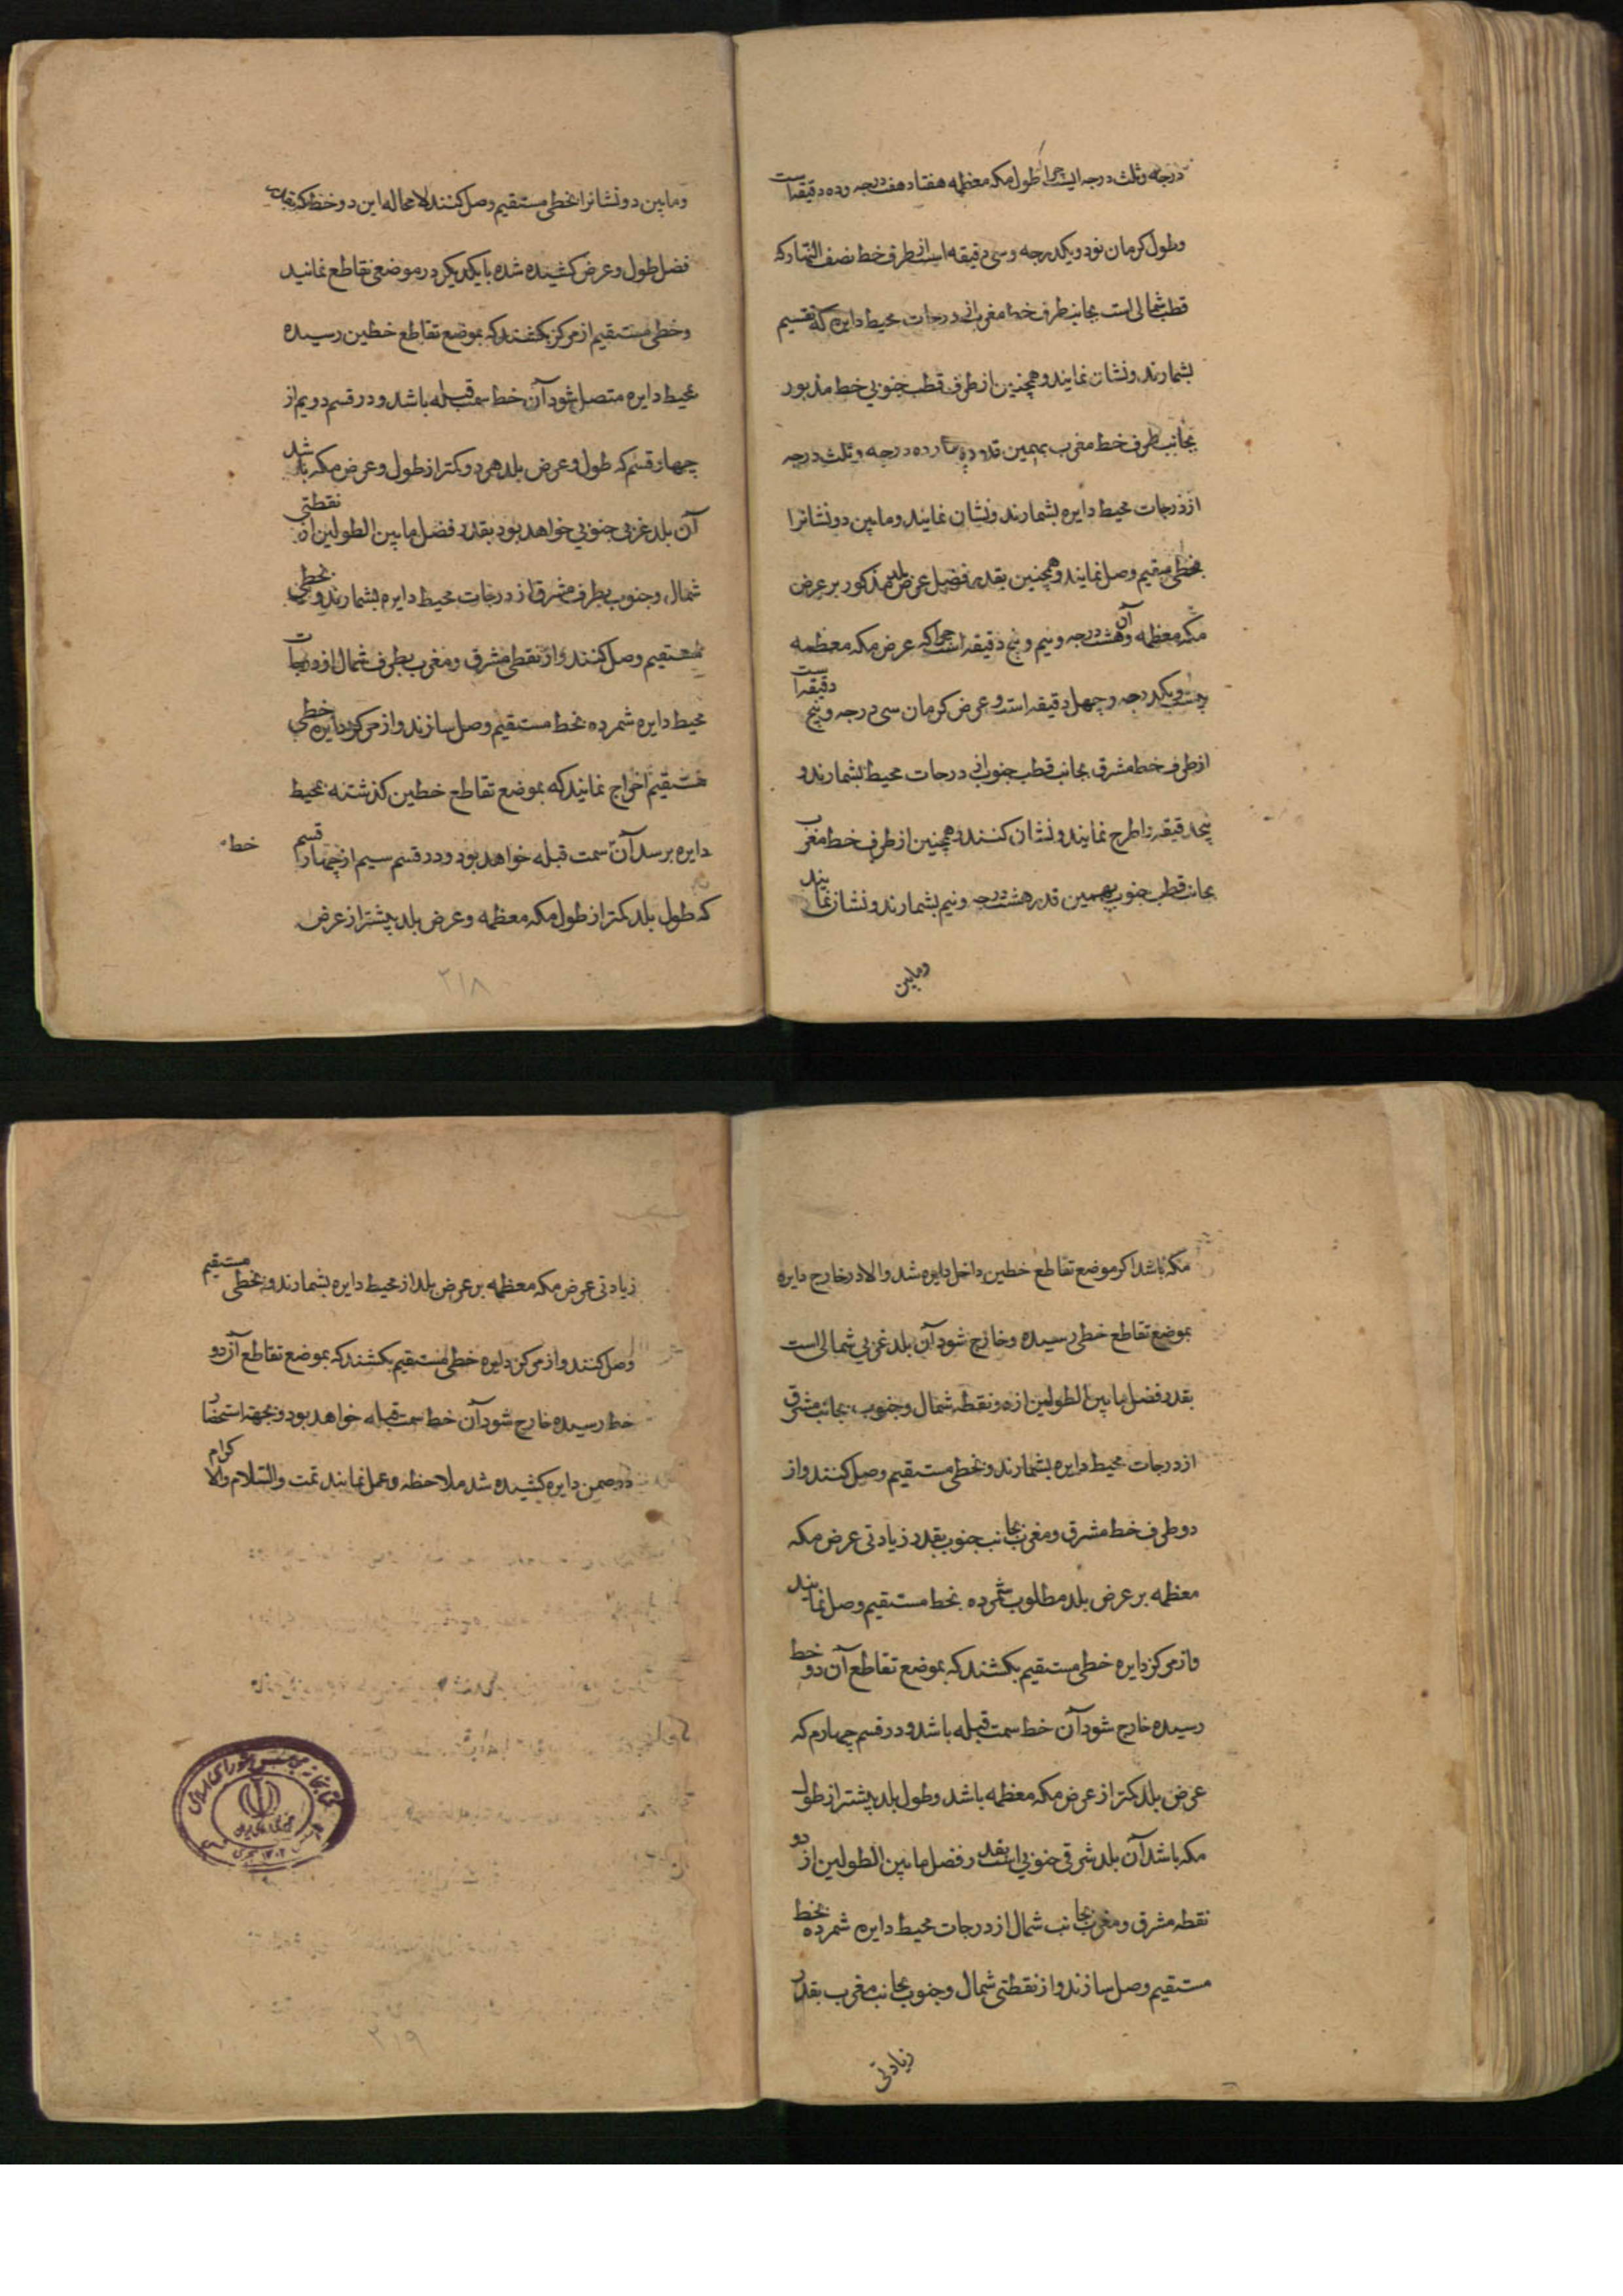 درجه وثلث درجه است چرا که طول مکه معظمه هفتاد هفت درجه و ده دقیقه است
وطول کرمان نود و یکدرجه و سی دقیقه است از طرف خط نصف النهار که
قطب شمالی است بجانب طرف خط مغرب از درجات محیط دایره که تقسیم
بشمارند و نشان نمایند و همچنین از طرف قطب جنوبی خط مذبور
بجانب طرف خط مغرب بهمین قدر درجه وثلث درجه
از درجات محیط دایره بشمارند و نشان نمایند و مابین دو نشانرا
بخطی مستقیم وصل نمایند و همچنین بقدر فضل عرض بلد مذکور بر عرض
مکه معظمه و آن هشت درجه و نیم و پنج دقیقه است چرا که عرض مکه معظمه
بیست و یکدرجه و چهل دقیقه است و عرض کرمان سی درجه و پنج دقیقه است
از طرف خط مشرق بجانب قطب جنوب از درجات محیط بشمارند و
پنجدقیقه را طرح نمایند و نشان کنند و همچنین از طرف خط مغرب
بجانب قطب جنوب بهمین قدر هشت درجه و نیم بشمارند و نشان نمایند
ومابین
ومابین دو نشانرا بخطی مستقیم وصل کنند لامحاله این دو خط که بقدر
فضل طول و عرض کشیده شده با یکدیکر در موضعی تقاطع نمایند
وخطی مستقیم از مرکز بکشند که بموضع تقاطع خطین رسیده
بمحیط دایره متصل شود آن خط سمت قبله باشد و در قسم دویم از
چهار قسم که طول و عرض بلد هر دو کمتر از طول و عرض مکه باشد
آن بلد غربی جنوبی خواهد بود بقدر فضل مابین الطولین از نقطتی
شمال و جنوب بطرف مشرق از درجات محیط دایره بشمارند و بخطی
مستقیم وصل کنند و از نقطی مشرق و مغرب بطرف شمال از درجات
محیط دایره شمرده بخط مستقیم وصل سازند و از مرکز دایره خطی
مستقیم اخراج نمایند که بموضع تقاطع خطین کذشته بمحیط
دایره برسد آن سمت قبله خواهد بود و در قسم سیم از چهار قسم
خط
که طول بلد کمتر از طول مکه معظمه و عرض بلد بیشتر از عرض
۲۱۸
مکه باشد اکر موضع تقاطع خطین داخل دایره شد والا در خارج دایره
بموضع تقاطع خطی رسیده و خارج شود آن بلد غربی شمالی است
بقدر فضل مابین الطولین از دو نقطه شمال و جنوب بجانب مشرق
از درجات محیط دایره بشمارند و بخطی مستقیم وصل کنند و از
دو طرف خط مشرق و مغرب بجانب جنوب بقدر زیادتی عرض مکه
معظمه بر عرض بلد مطلوب شمرده بخط مستقیم وصل نمایند
و از مرکز دایره خطی مستقیم بکشند که بموضع تقاطع آن دو خط
رسیده خارج شود آن خط سمت قبله باشد و در قسم چهارم که
عرض بلد کمتر از عرض مکه معظمه باشد و طول بلد بیشتر از طول
مکه باشد آن بلد شرقی جنوبی است بقدر فضل مابین الطولین از دو
نقطه مشرق و مغرب بجانب شمال از درجات محیط دایره شمرده بخط
مستقیم وصل سازند و از نقطتی شمال و جنوب بجانب مغرب بقدر
زیادتی
زیادتی عرض مکه معظمه بر عرض بلد از محیط دایره بشمارند و بخطی مستقیم
وصل کنند و از مرکز دایره خطی مستقیم بکشند که بموضع تقاطع آن دو
خط رسیده خارج شود آن خط سمت قبله خواهد بود و بجهة استحضار
در ضمن دایره کشیده شد ملاحظه و عمل نمایند تمت والسلام والاکرام
کتابخانه مجلس شورای اسلامی
۲۱۹